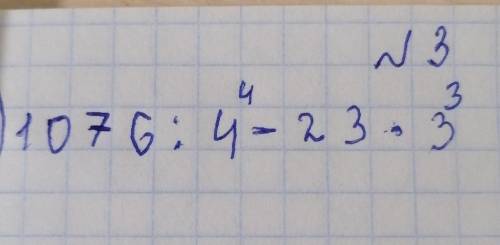 № 3
) 1076 : 4⁴ - 23 · 3³